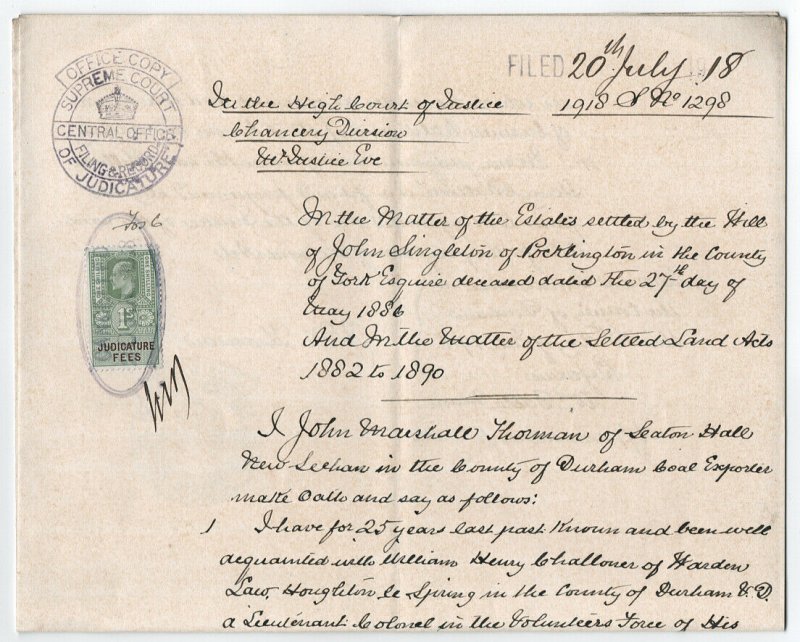 OFFICE COPY
SUPREME COURT
CENTRAL OFFICE
FILING & RECORD
OF JUDICATURE
FILED 20th July 1918
In the High Court of Justice 1918 S No 1298
Chancery Division
Mr Justice Eve
Fos 6
1S
JUDICATURE
FEES
In the Matter of the Estates settled by the Will
of John Singleton of Pocklington in the County
of York Esquire deceased dated the 27th day of
May 1886
And In the Matter of the Settled Land Acts
1882 to 1890
I John Marshall Thorman of Seaton Hall
New Seehan in the County of Durham Coal Exporter
make Oath and say as follows:
1 I have for 25 years last past known and been well
acquainted with William Henry Challoner of Warden
Law, Houghton le Spring in the County of Durham V.D.
a Lieutenant Colonel in the Volunteers Force of His